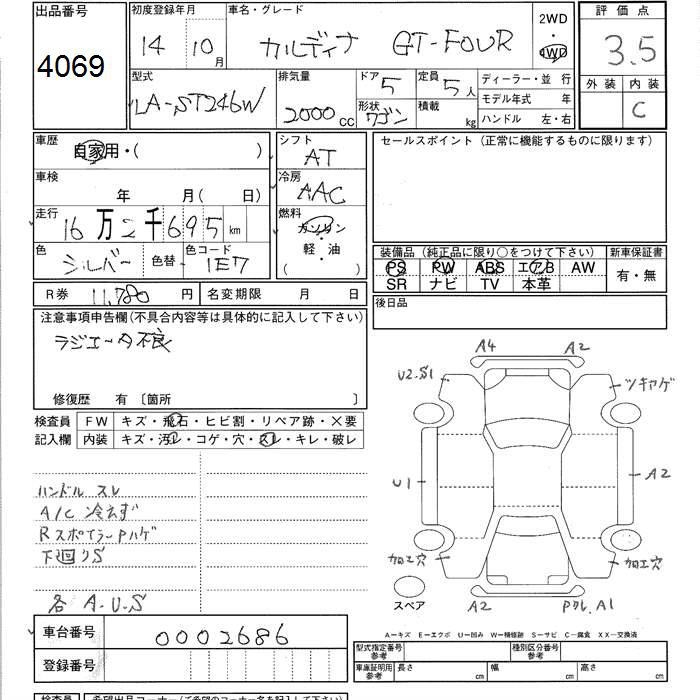 出品番号
4069
初度登録年月
14 10月
車名・グレード
カルディナ GT-FOUR
2WD
4WD
評価点
3.5
外装 内装
C
型式
LA-ST246W
排気量
2000cc
ドア
5
形状
ワゴン
定員
5人
積載
kg
ディーラー・並行
モデル年式 年
ハンドル 左・右
車歴
自家用・( )
車検
年 月( 日)
走行
16万2千695km
色
シルバー
色替
色コード
1E7
シフト
AT
冷房
AAC
燃料
ガソリン
・
軽・油
( )
セールスポイント(正常に機能するものに限ります)
装備品(純正品に限り○をつけて下さい)
PS PW ABS エアB AW
SR ナビ TV 本革
新車保証書
有・無
R券 11,780円
名変期限 月 日
後日品
注意事項申告欄(不具合内容等は具体的に記入して下さい)
ラジエータ不良
修復歴 有〔箇所 〕
検査員
記入欄
FW キズ・飛石・ヒビ割・リペア跡・×要
内装 キズ・汚レ・コゲ・穴・スレ・キレ・破レ
ハンドル スレ
A/C 冷えず
Rスポイラー Pハゲ
下廻りS
各 A.U.S
A4 A2
U2.S1
ツキアゲ
U1
A2
加工穴
加工穴
スペア
A2
Pクレ, A1
A-キズ E-エクボ U-凹み W-補修跡 S-サビ C-腐食 XX-交換済
車台番号
0002686
登録番号
型式指定番号
参考
種別区分番号
参考
車庫証明用
参考
長さ cm
幅 cm
高さ cm
検査員
希望出品コーナー(ご希望のコーナー名を記入下さい)